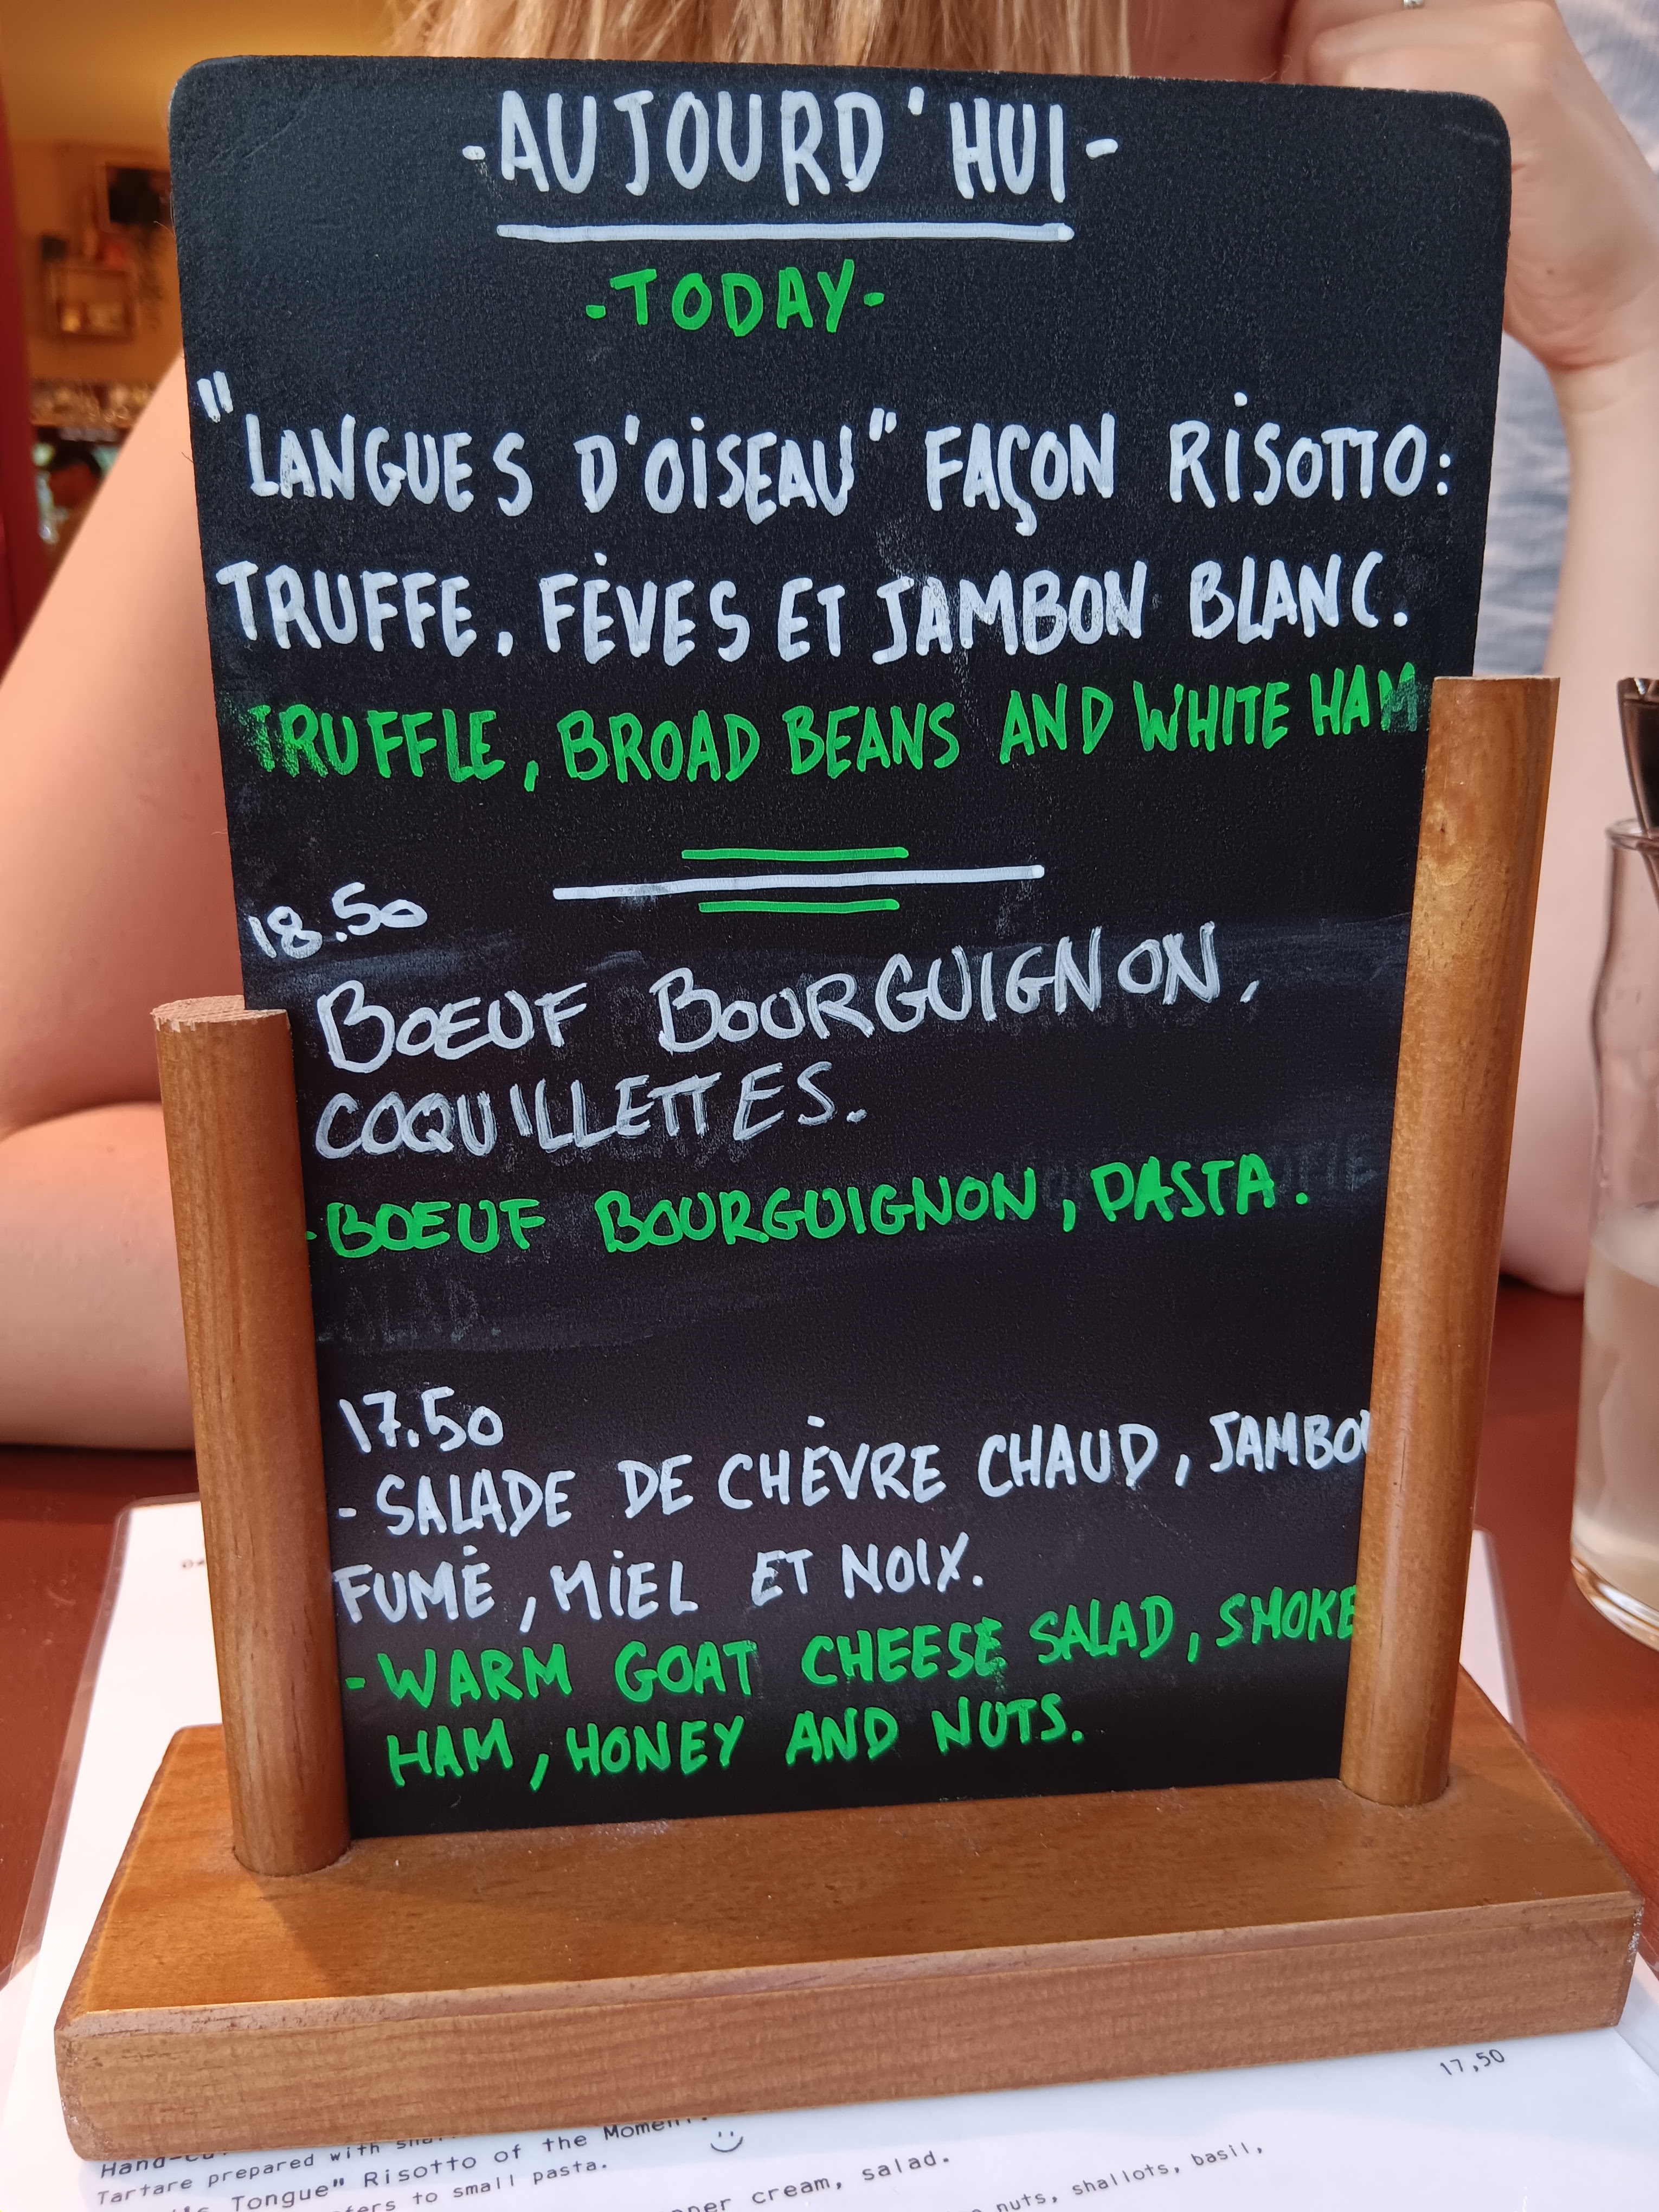 -AUJOURD'HUI-
-TODAY-
"LANGUES D'OISEAU" FAÇON RISOTTO:
TRUFFE, FÈVES ET JAMBON BLANC.
TRUFFLE, BROAD BEANS AND WHITE HAM
18.50
BOEUF BOURGUIGNON,
COQUILLETTES.
-BOEUF BOURGUIGNON, PASTA.
17.50
- SALADE DE CHÈVRE CHAUD, JAMBO
FUMÉ, MIEL ET NOIX.
-WARM GOAT CHEESE SALAD, SMOKE
HAM, HONEY AND NUTS.
17,50
Tartare prepared with
Tongue" Risotto of the
to small pasta.
cream, salad.
nuts, shallots, basil,